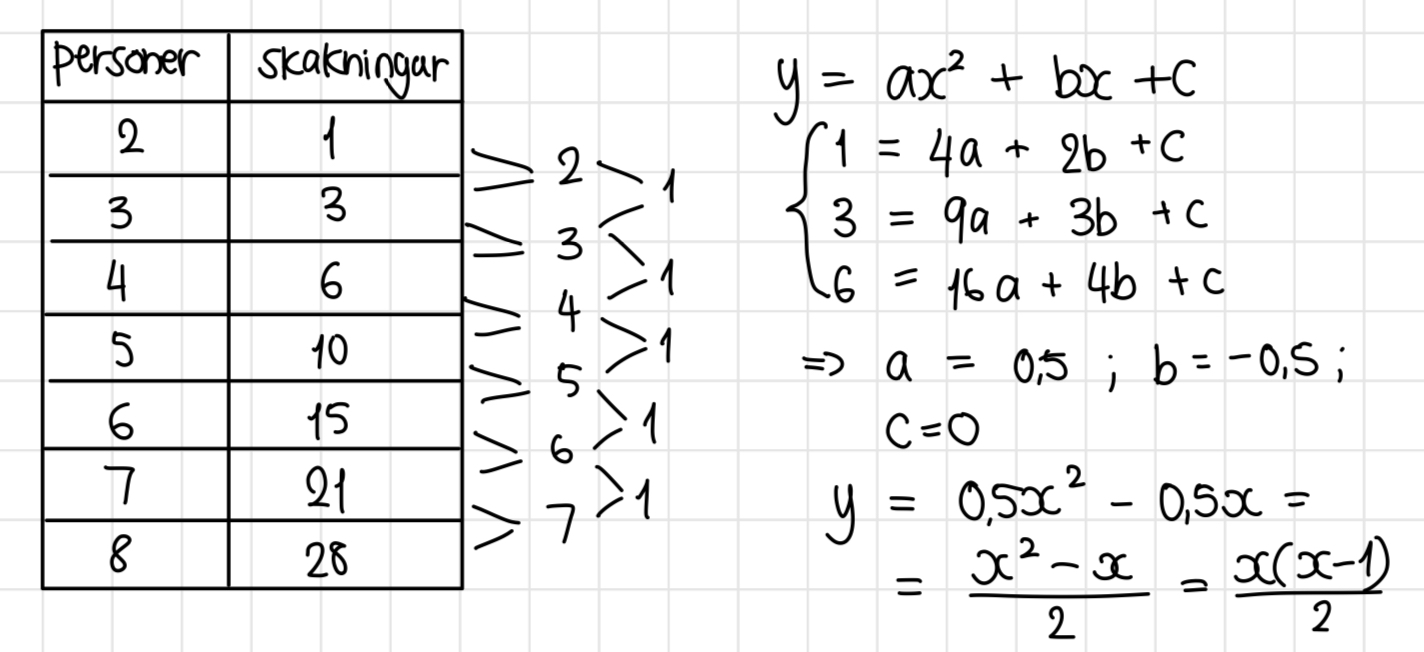 personer skakningar
2 1
3 3
4 6
5 10
6 15
7 21
8 28
2
3
4
5
6
7
1
1
1
1
1
y = ax² + bx + c
1 = 4a + 2b + c
3 = 9a + 3b + c
6 = 16a + 4b + c
=> a = 0,5 ; b = -0,5 ;
c=0
y = 0,5x² - 0,5x =
= (x² - x)/2 = x(x-1)/2